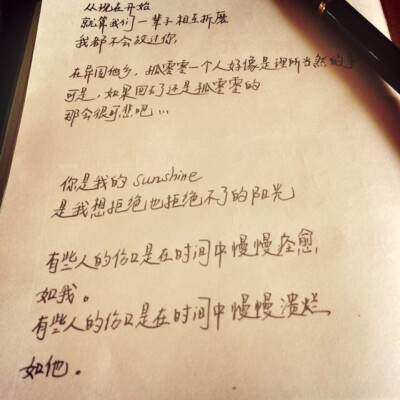 从现在开始
就算我们一辈子相互折磨
我都不会放过你
在异国他乡，孤零零一个人好像是理所当然的事
可是，如果回了还是孤零零的
那会很可悲吧...
你是我的 sunshine
是我想拒绝也拒绝不了的阳光
有些人的伤口是在时间中慢慢痊愈，
如我。
有些人的伤口是在时间中慢慢溃烂，
如他。